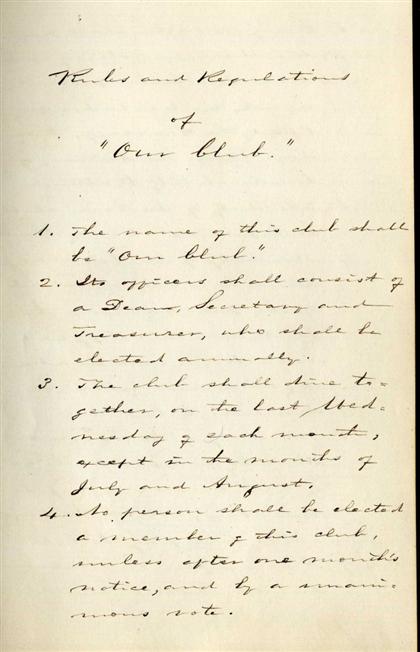 Rules and Regulations
of
"Our Club."
1. The name of this club shall
be "Our Club."
2. Its officers shall consist of
a Dean, Secretary and
Treasurer, who shall be
elected annually.
3. The club shall dine to=
gether, on the last Wed=
nesday of each month,
except in the months of
July and August.
4. No person shall be elected
a member of this club,
unless after one month's
notice, and by a unani-
mous vote.